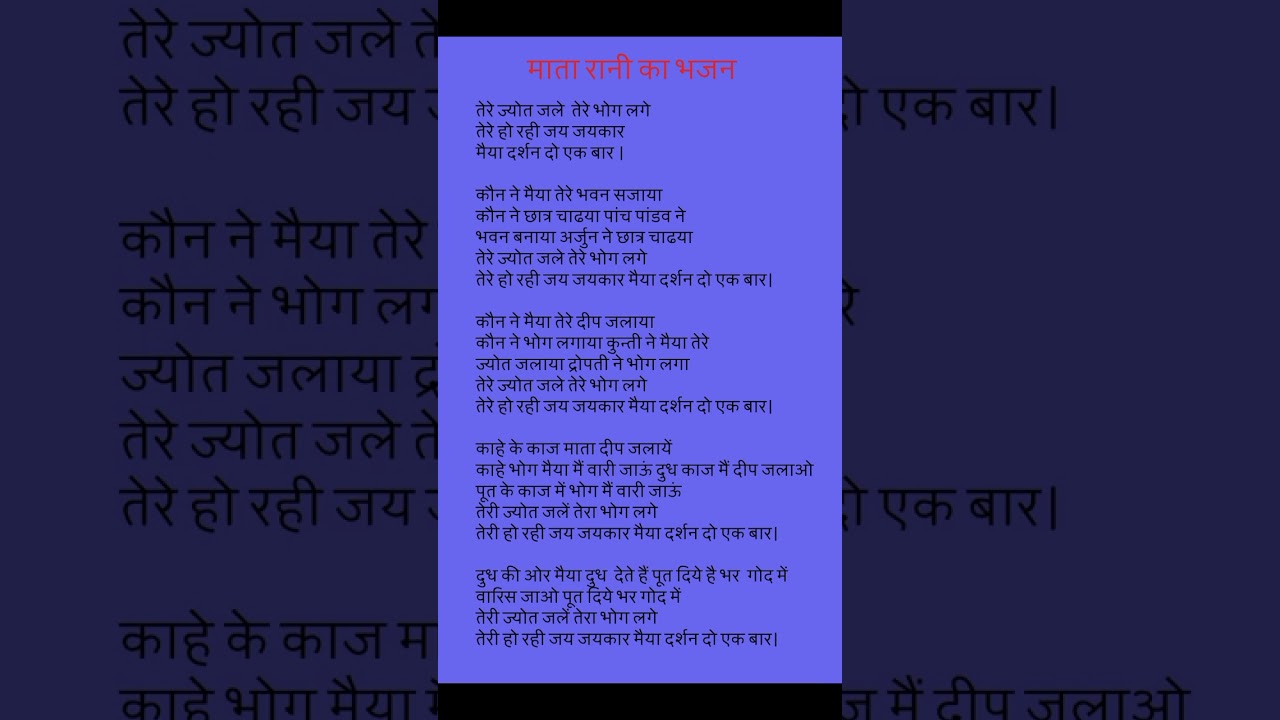 माता रानी का भजन
तेरे ज्योत जले तेरे भोग लगे
तेरे हो रही जय जयकार
मैया दर्शन दो एक बार |
कौन ने मैया तेरे भवन सजाया
कौन ने छात्र चाढया पांच पांडव ने
भवन बनाया अर्जुन ने छात्र चाढया
तेरे ज्योत जले तेरे भोग लगे
तेरे हो रही जय जयकार मैया दर्शन दो एक बार|
कौन ने मैया तेरे दीप जलाया
कौन ने भोग लगाया कुन्ती ने मैया तेरे
ज्योत जलाया द्रोपती ने भोग लगा
तेरे ज्योत जले तेरे भोग लगे
तेरे हो रही जय जयकार मैया दर्शन दो एक बार|
काहे के काज माता दीप जलायें
काहे भोग मैया मैं वारी जाऊं दुध काज मैं दीप जलाओ
पूत के काज में भोग मैं वारी जाऊं
तेरी ज्योत जलें तेरा भोग लगे
तेरी हो रही जय जयकार मैया दर्शन दो एक बार|
दुध की ओर मैया दुध देते हैं पूत दिये है भर गोद में
वारिस जाओ पूत दिये भर गोद में
तेरी ज्योत जलें तेरा भोग लगे
तेरी हो रही जय जयकार मैया दर्शन दो एक बार|